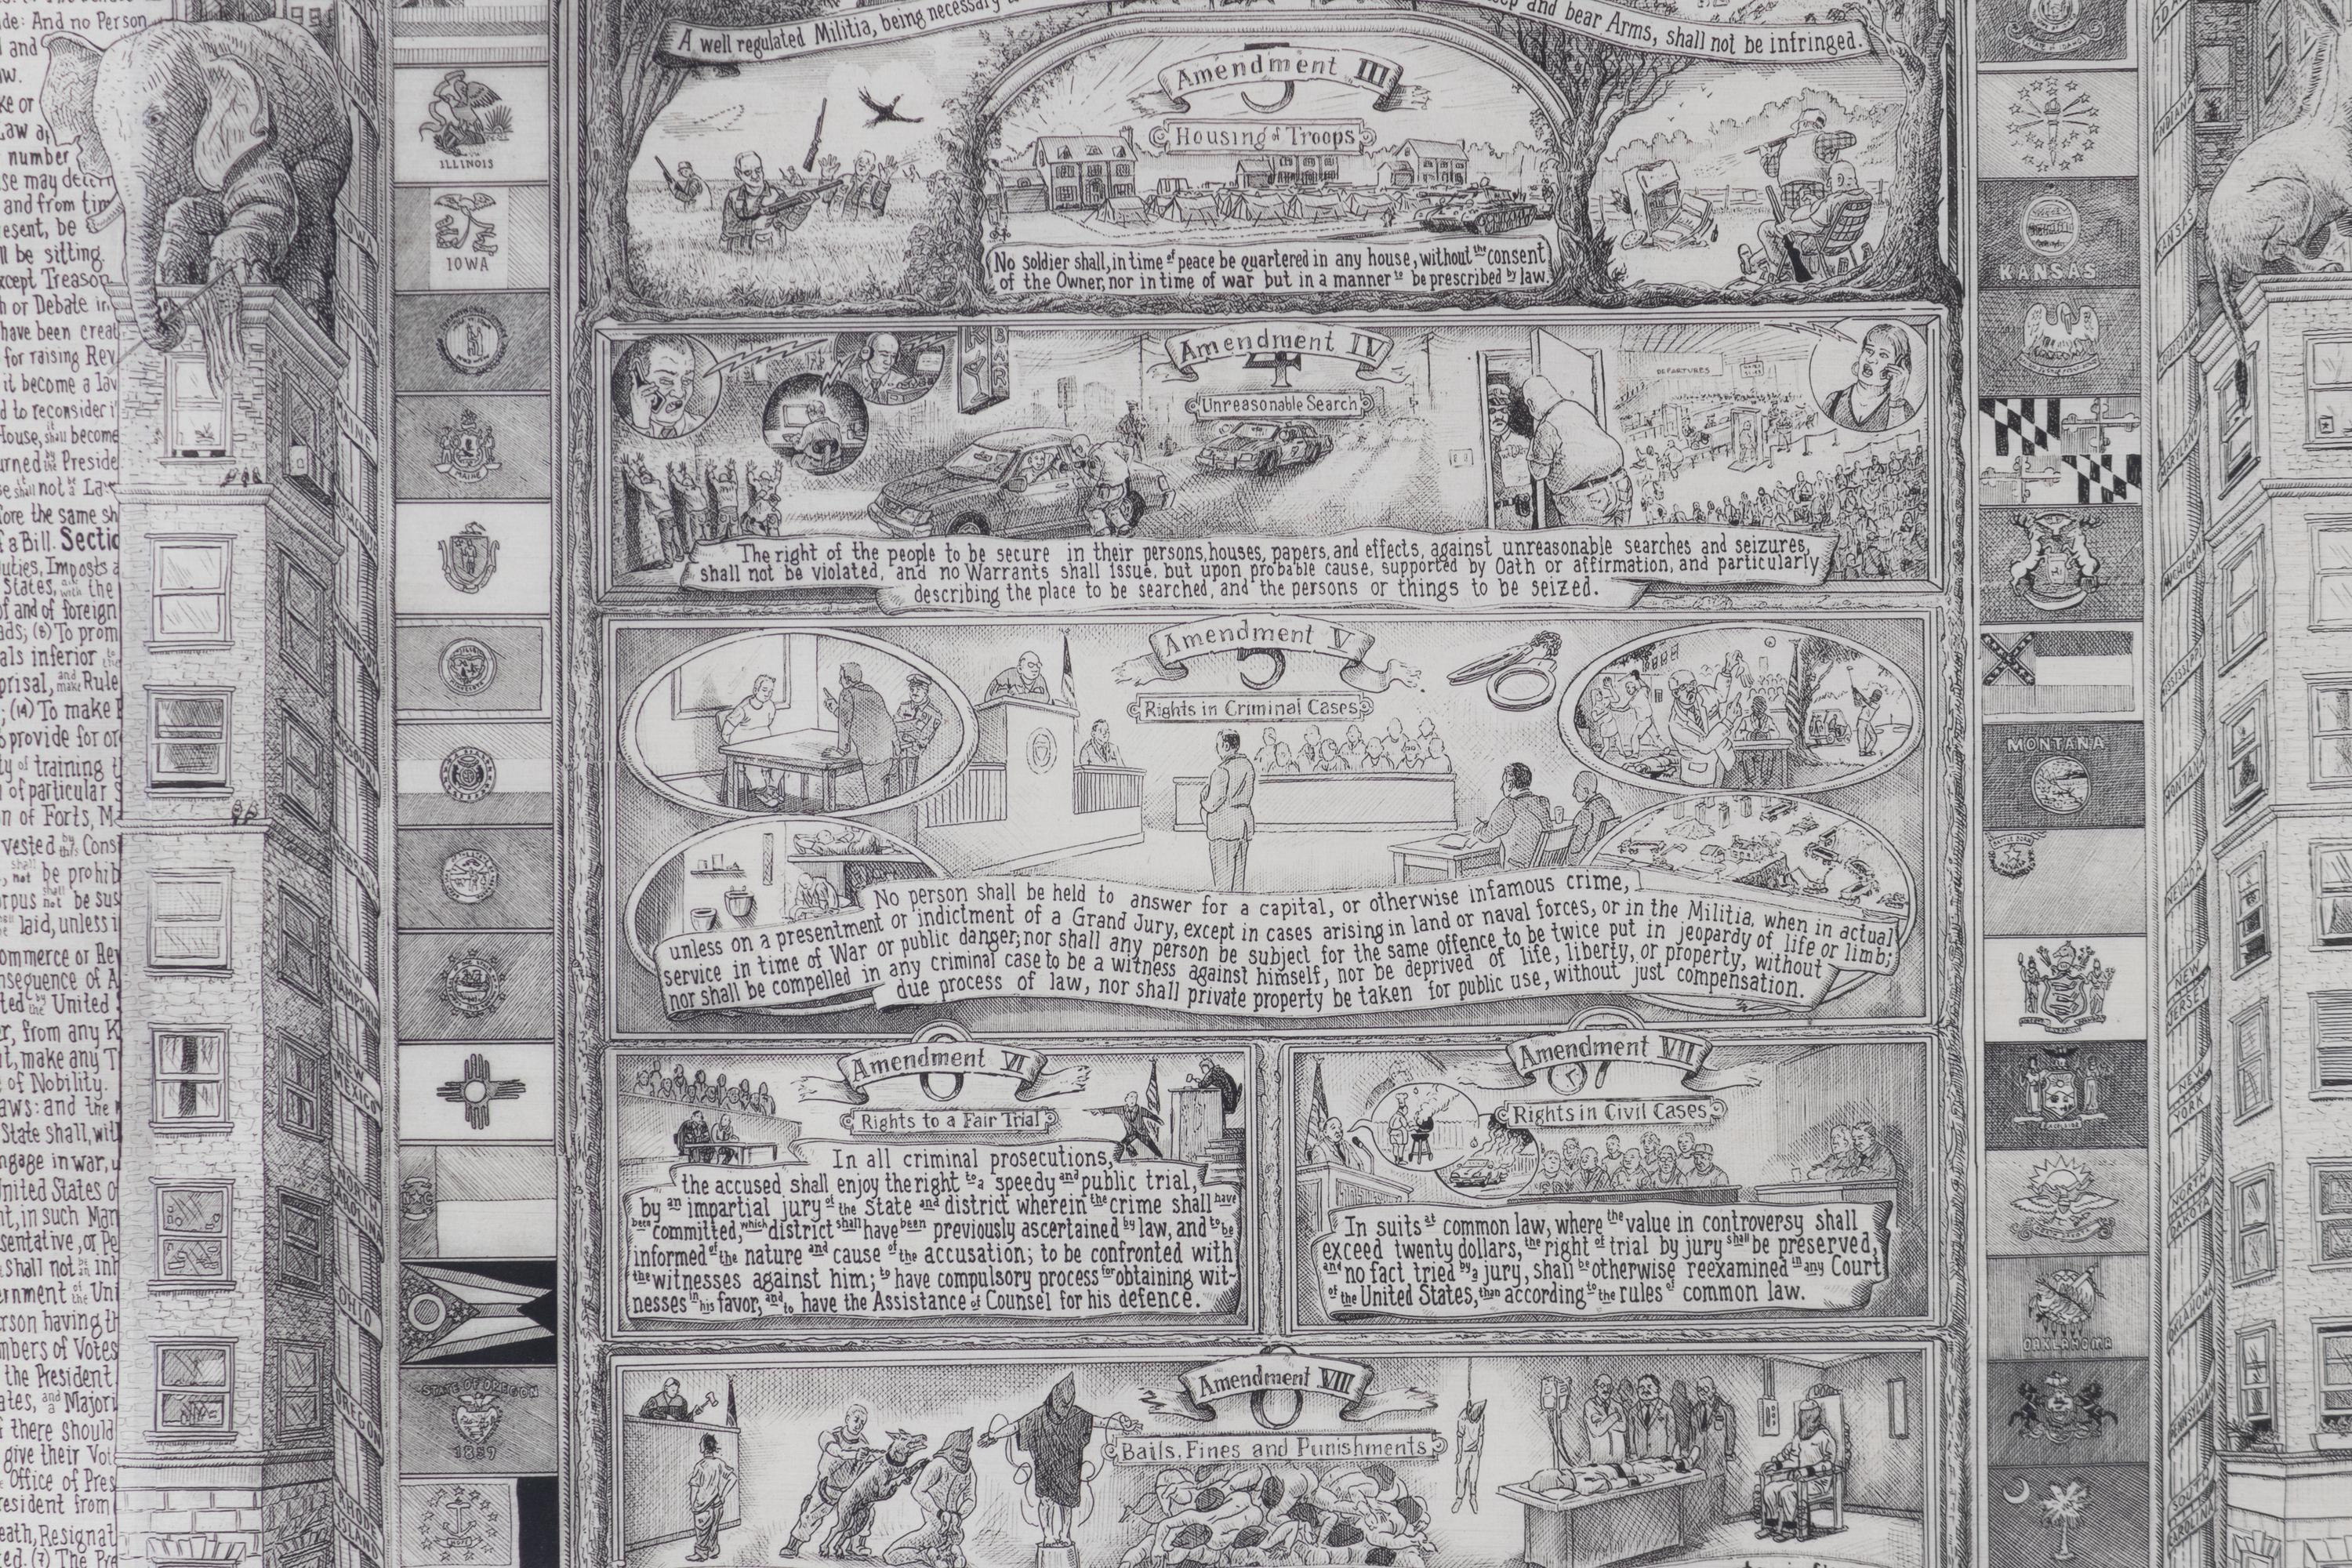 A well regulated Militia, being necessary
and bear Arms, shall not be infringed.
Amendment III
3
Housing of Troops
No soldier shall, in time of peace be quartered in any house, without the consent
of the Owner, nor in time of war but in a manner to be prescribed by law.
Amendment IV
4
Unreasonable Search
BAR
DEPARTURES
The right of the people to be secure in their persons, houses, papers, and effects, against unreasonable searches and seizures,
shall not be violated, and no Warrants shall issue, but upon probable cause, supported by Oath or affirmation, and particularly
describing the place to be searched, and the persons or things to be seized.
Amendment V
5
Rights in Criminal Cases
No person shall be held to answer for a capital, or otherwise infamous crime,
unless on a presentment or indictment of a Grand Jury, except in cases arising in land or naval forces, or in the Militia, when in actual
service in time of War or public danger; nor shall any person be subject for the same offence to be twice put in jeopardy of life or limb;
nor shall be compelled in any criminal case to be a witness against himself, nor be deprived of life, liberty, or property, without
due process of law, nor shall private property be taken for public use, without just compensation.
Amendment VI
6
Rights to a Fair Trial
In all criminal prosecutions,
the accused shall enjoy the right to a speedy and public trial,
by an impartial jury of the State and district wherein the crime shall have
been committed, which district shall have been previously ascertained by law, and to be
informed of the nature and cause of the accusation; to be confronted with
the witnesses against him; to have compulsory process for obtaining wit-
nesses in his favor, and to have the Assistance of Counsel for his defence.
Amendment VII
7
Rights in Civil Cases
In suits at common law, where the value in controversy shall
exceed twenty dollars, the right of trial by jury shall be preserved,
and no fact tried by a jury, shall be otherwise reexamined in any Court
of the United States, than according to the rules of common law.
Amendment VIII
8
Bails, Fines and Punishments
ILLINOIS
IOWA
MAINE
STATE OF OREGON
1859
IOWA
MAINE
NEW HAMPSHIRE
NEW MEXICO
NORTH CAROLINA
OHIO
OREGON
RHODE ISLAND
KANSAS
MONTANA
OKLAHOMA
INDIANA
KANSAS
MARYLAND
MICHIGAN
MISSISSIPPI
MONTANA
NEVADA
NEW JERSEY
NEW YORK
NORTH DAKOTA
OKLAHOMA
SOUTH CAROLINA
de: And no Person
and
number
se may
and from tim
esent, be
ll be sitting.
xcept Treason
h or Debate in
have been creat
for raising Rev
it become a law
d to reconsider i
House, shall become
urned by the Preside
se shall not be a
fore the same sh
f a Bill. Sectio
uties, Imposts a
States, with the
of and of foreign
ads; (8) To prom
als inferior to the
prisal, and make Rule
; (14) To make
provide for or
ty of training t
of particular
n of Forts, Ma
vested by this Cons
, shall not be prohib
rpus shall not be sus
laid, unless i
ommerce or Rev
nsequence of A
ted by the United
er, from any K
t, make any T
of Nobility.
aws: and the
State shall, wit
ngage in war, u
United States o
t, in such Man
sentative, or Pe
shall not be inh
ernment of the Uni
rson having th
mbers of Votes
the President
ates, and a Majori
f there should
give their Vot
Office of Pres
resident from
eath, Resignat
ed. (7) The Pre